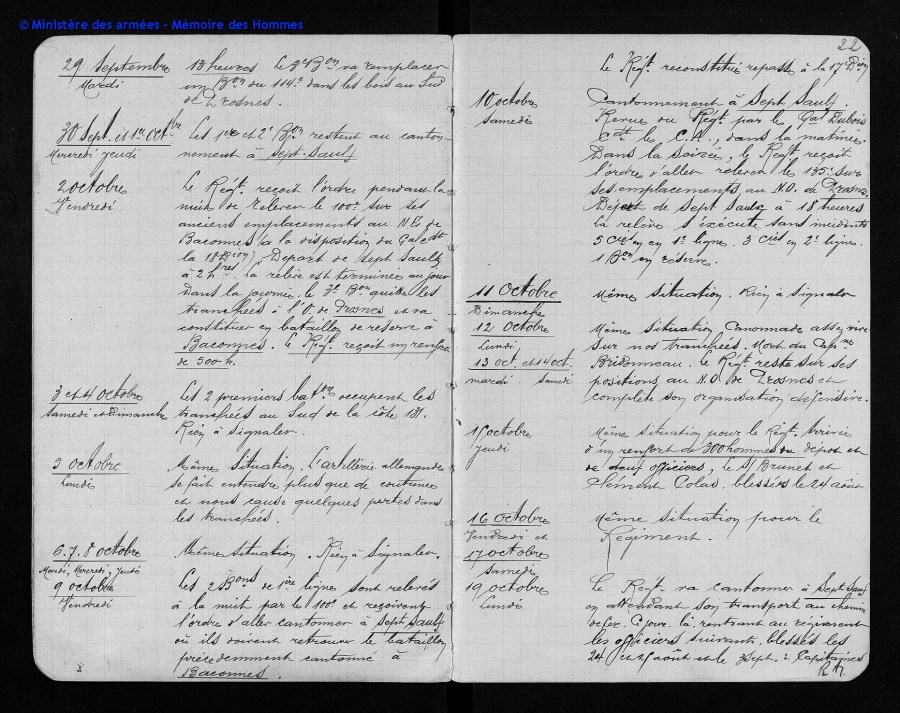 © Ministère des armées - Mémoire des Hommes
29 Septembre
Mardi
13 heures Le 3e Bon va remplacer
un Bon du 114e dans les bois au Sud
de Prosnes.
30 Sept. et 1er Octbre
Mercredi Jeudi
Les 1er et 2e Bon restent au canton-
nement à Sept-Saulx
2 octobre
Vendredi
Le Régt. reçoit l'ordre pendant la
nuit de relever le 100e sur ses
anciens emplacements au N.E. de
Baconnes (à la disposition du Gal Cdt
la 18e Dion). Départ de Sept Saulx
à 2 hres. La relève est terminée au jour
Dans la journée, le 3e Bon quitte les
tranchées à l'O. de Prosnes et va
constituer un bataillon de réserve à
Baconnes. Le Régt. reçoit un renfort
de 500 h.
3 et 4 octobre
Samedi et Dimanche
Les 2 premiers baton occupent les
tranchées au Sud de la côte 131.
Rien à signaler.
5 octobre
Lundi
Même situation. L'artillerie allemande
se fait entendre plus que de coutume
et nous cause quelques pertes dans
les tranchées.
6. 7. 8 octobre
Mardi, Mercredi, Jeudi
Même situation. Rien à signaler.
9 octobre
Vendredi
Les 2 Bons de 1ère ligne sont relevés
à la nuit par le 100e et reçoivent
l'ordre d'aller cantonner à Sept Saulx
où ils doivent retrouver le bataillon
précédemment cantonné à
Baconnes.
22
Le Régt. reconstitué repasse à la 17e Dion
10 octobre
Samedi
Cantonnement à Sept Saulx.
Revue du Régt. par le Gal Dubois
Cdt le C.A., dans la matinée.
Dans la soirée, le Régt. reçoit
l'ordre d'aller relever le 135e sur
ses emplacements au N.O. de Prosnes.
Départ de Sept Saulx à 18 heures
La relève s'exécute sans incidents
5 Cies en 1e ligne. 3 Cies en 2e ligne.
1 Bon en réserve.
11 Octobre
Dimanche
Même situation. Rien à signaler
12 Octobre
Lundi
Même situation Canonnade assez vive
sur nos tranchées. Mort du Capne
13 oct. et 14 oct.
Bridonneau. Le Régt. reste sur ses
mardi.
positions au N.O de Prosnes et
complète son organisation défensive.
15 octobre
Jeudi
Même situation pour le Régt. Arrivée
d'un renfort de 300 hommes du dépôt et
de deux officiers, le s/ Brunet et
Clément Colas, blessés le 24 août
16 octobre
Vendredi et
17 octobre
Samedi
Même situation pour le
Régiment.
19 octobre
Lundi
Le Régt. va cantonner à Sept-Saulx
en attendant son transport au chemin
de fer. Ce jour là, rentrent au régiment
les officiers suivants, blessés les
24 août et le Sept. : Capitaines